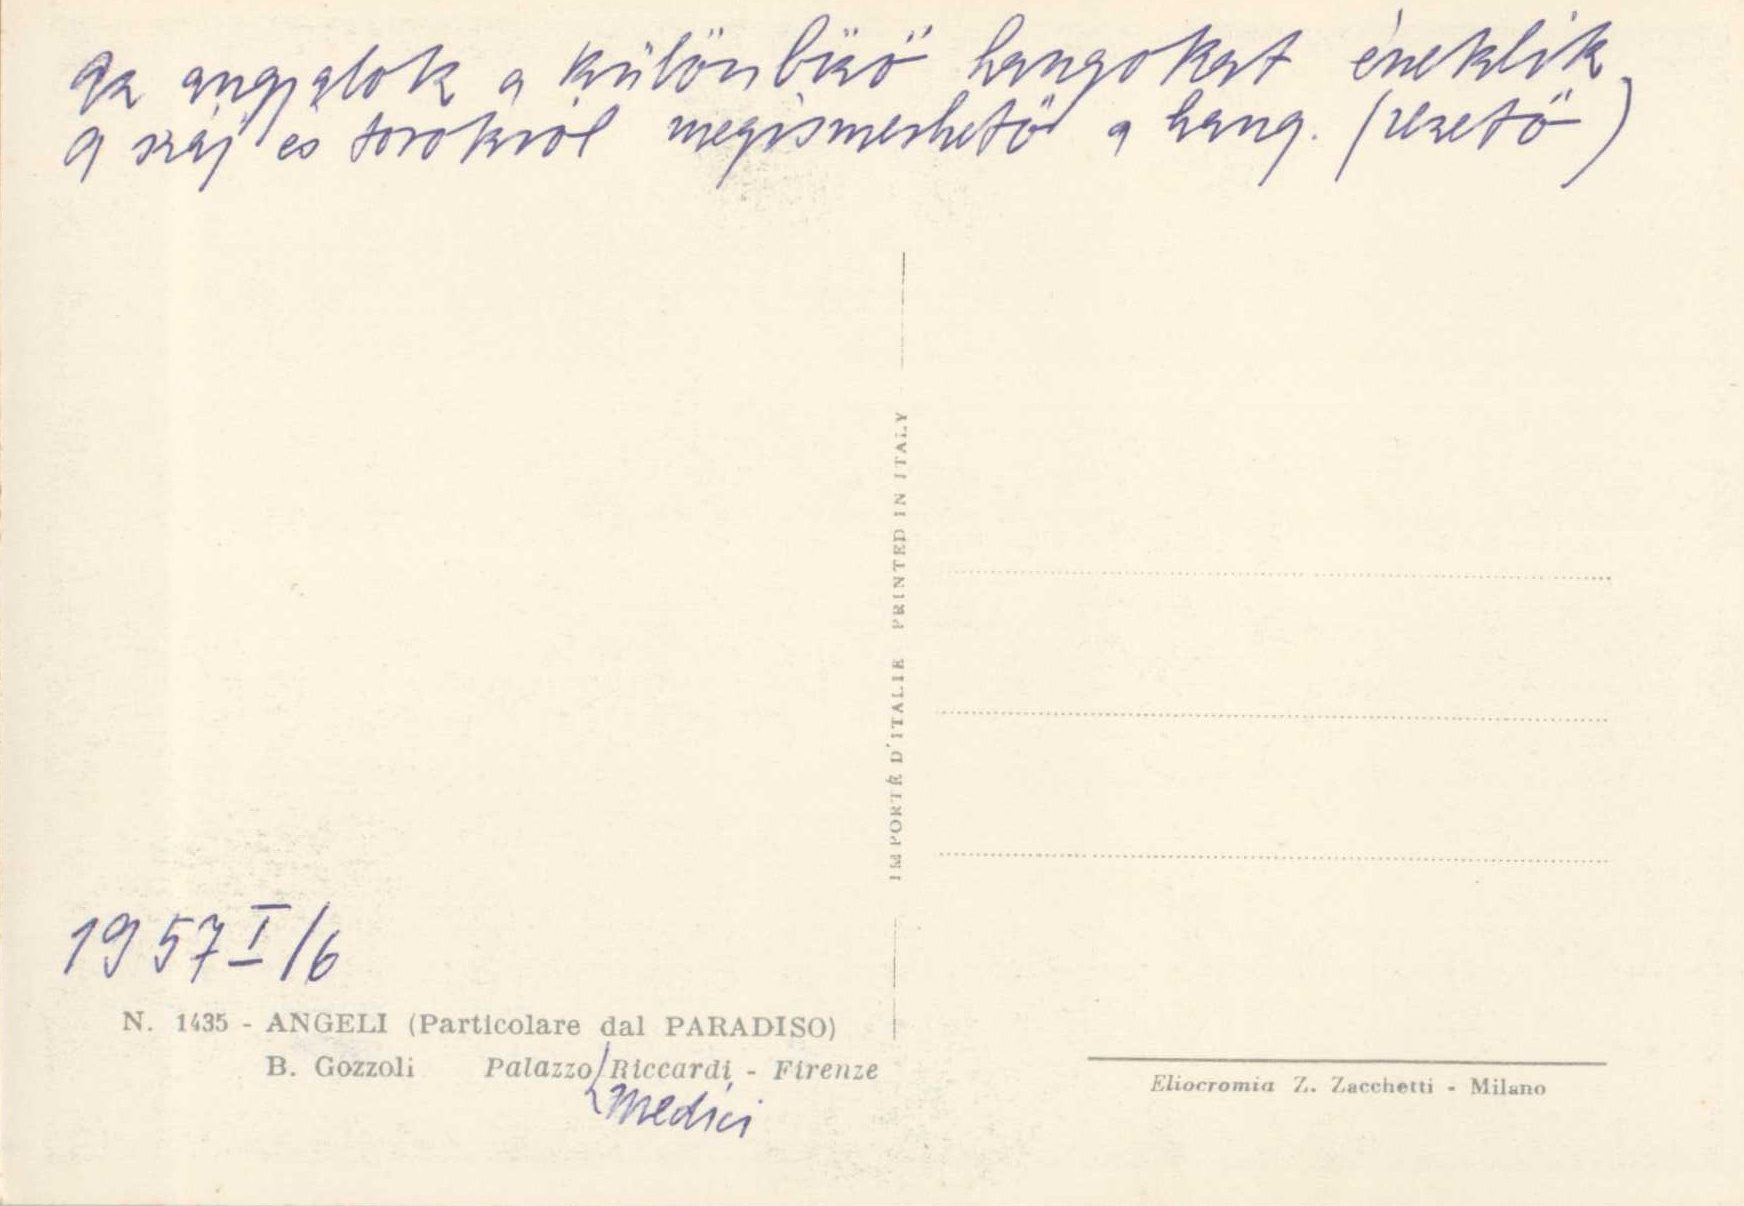 Az angyalok a különböző hangokat éneklik,
A száj és torokról megismerhető a hang. (vezető)
IMPORTÉ D'ITALIE PRINTED IN ITALY
1957 I/6
N. 1435 - ANGELI (Particolare dal PARADISO)
B. Gozzoli Palazzo Riccardi - Firenze
Medici
Eliocromia Z. Zacchetti - Milano